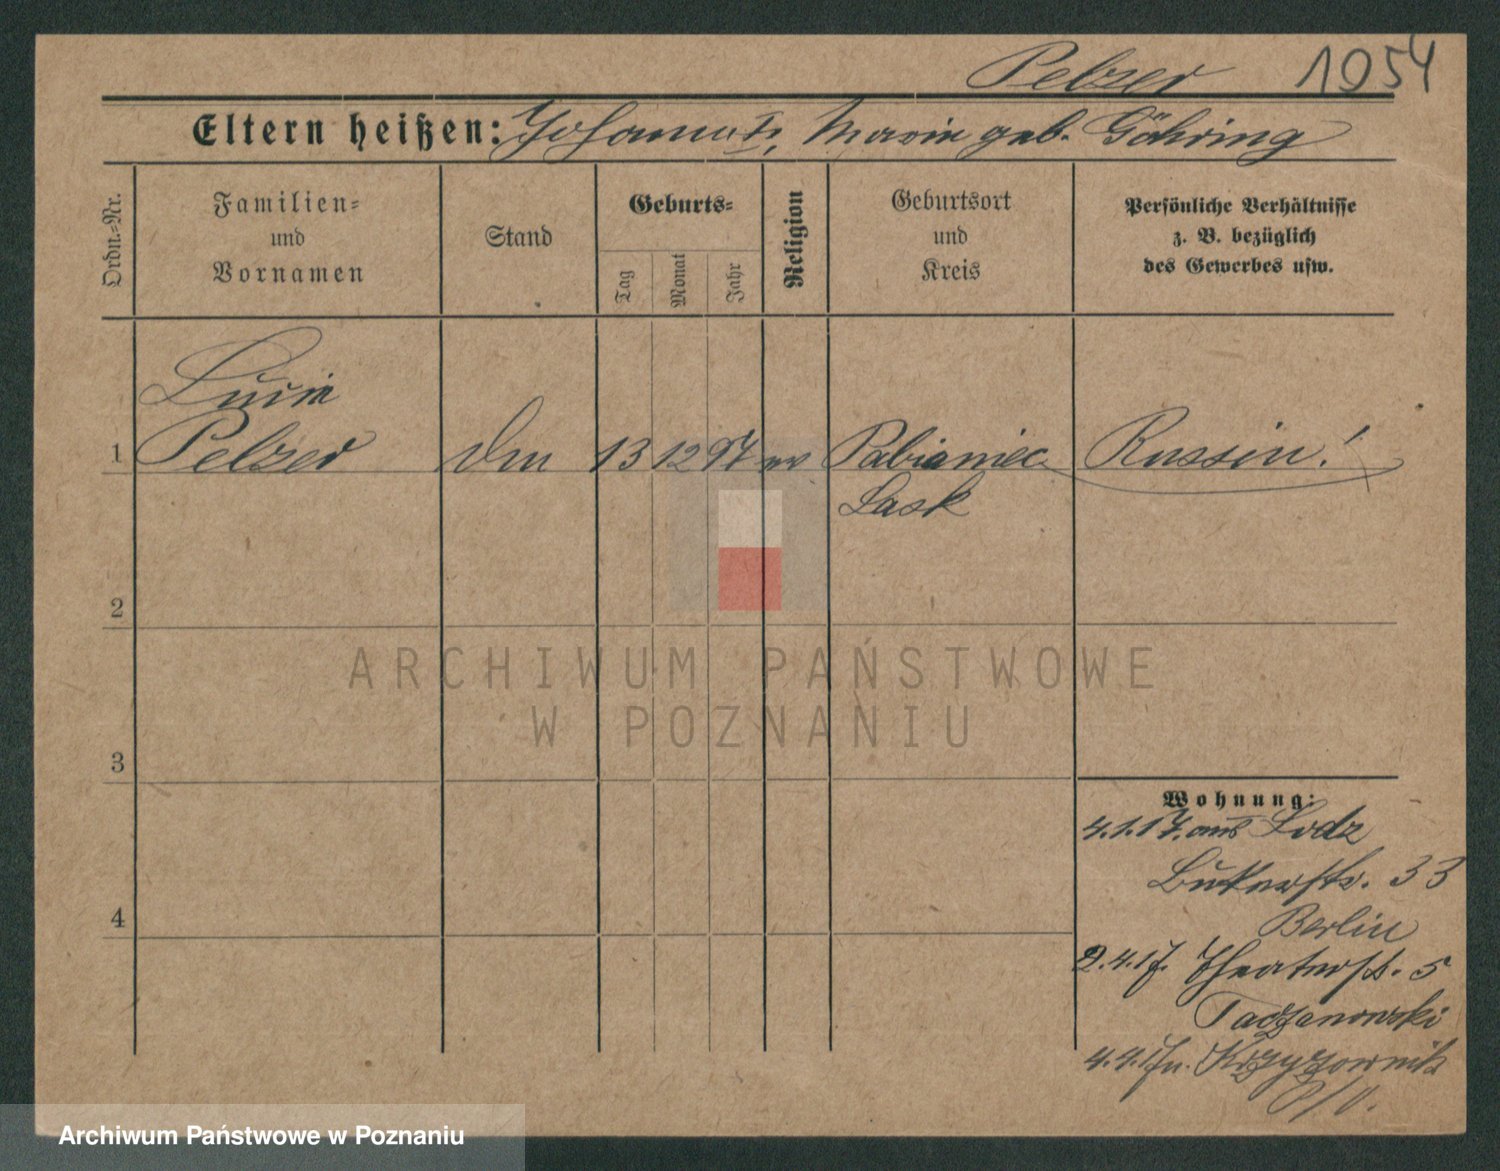 Pelzer 1954
Eltern heißen: Johann, Marie geb. Göhring
Ordn.=Nr.
Familien=
und
Vornamen
Stand
Geburts=
Tag
Monat
Jahr
Religion
Geburtsort
und
Kreis
Persönliche Verhältnisse
z. B. bezüglich
des Gewerbes usw.
Lucie
1 Pelzer 13 12 97 ev Pabianiec Russin!
Lask
2
3
4
Wohnung:
4.1.17. aus Lodz
33
Berlin
2.4.17. Theaterstr. 5
Taczanowski
4.4.17 n. Krzyzownik
P/O.
ARCHIWUM PAŃSTWOWE
W POZNANIU
Archiwum Państwowe w Poznaniu